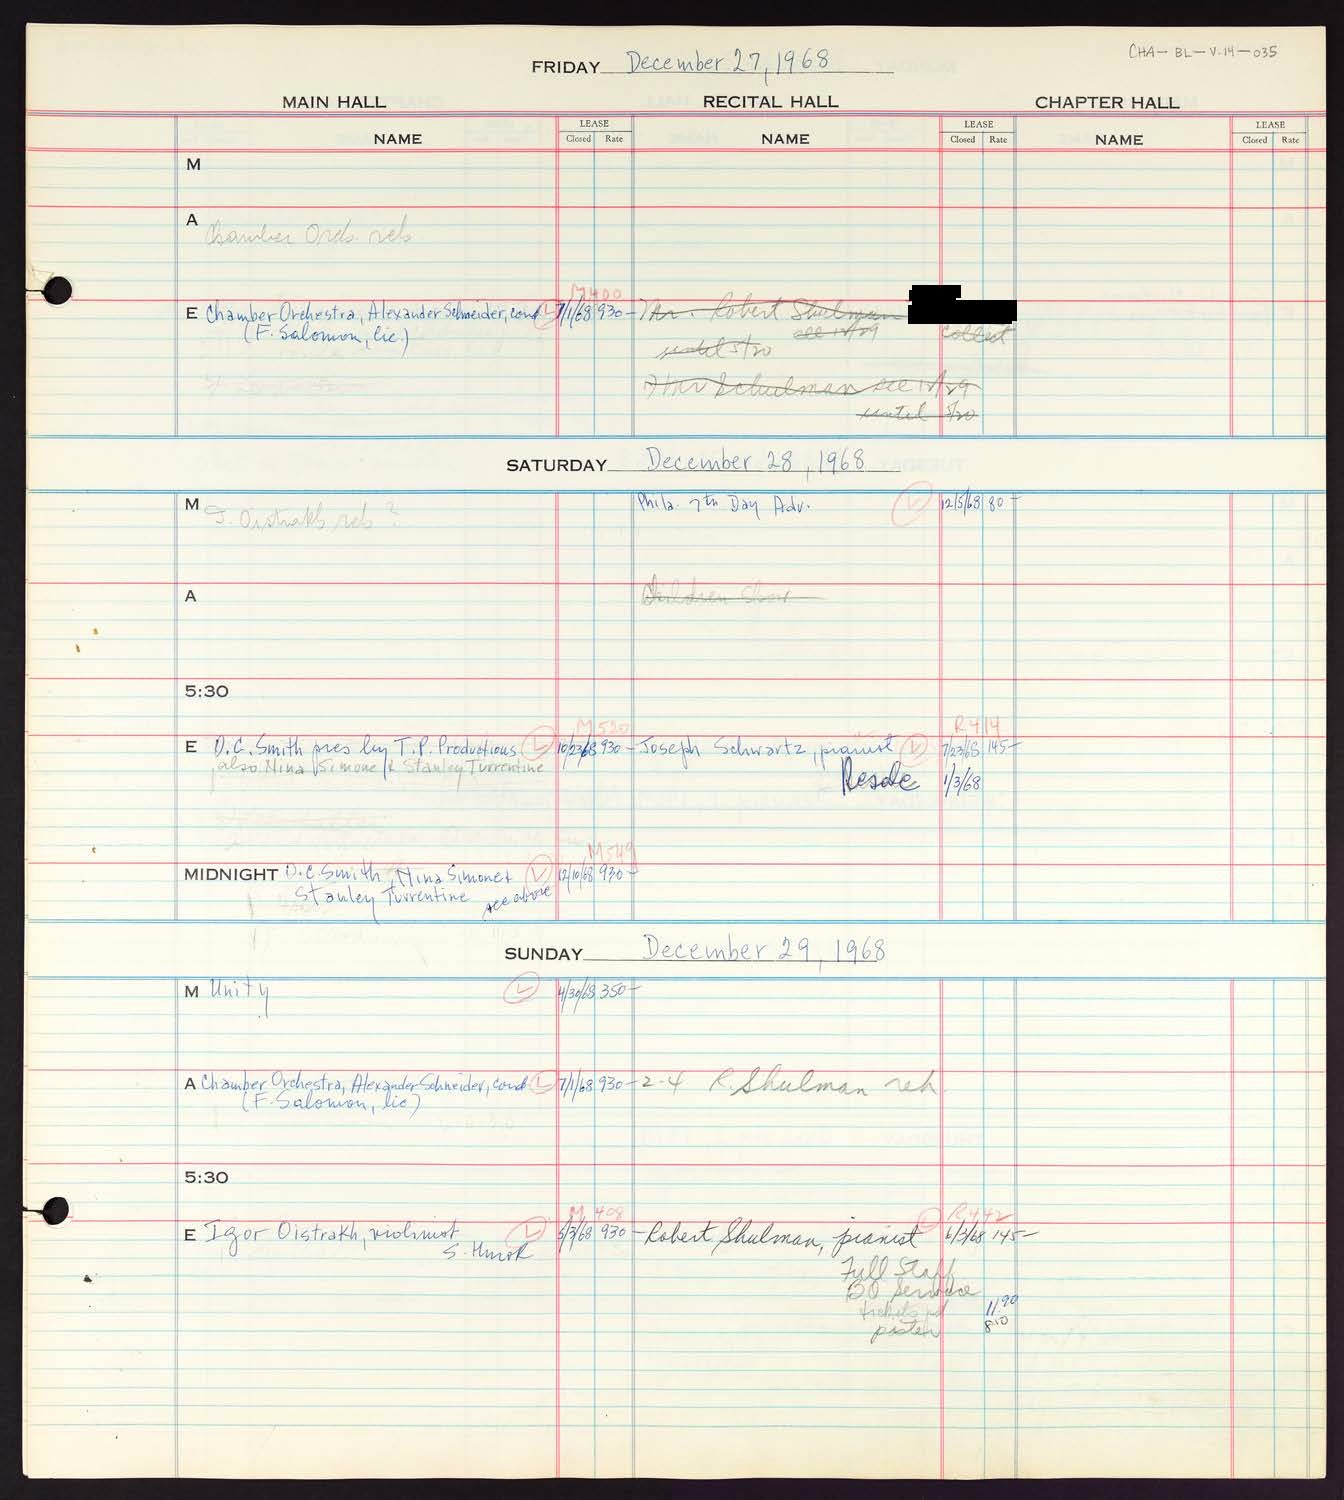 CHA-BL-V.14-035
FRIDAY December 27, 1968
MAIN HALL RECITAL HALL CHAPTER HALL
NAME LEASE Closed Rate NAME LEASE Closed Rate NAME LEASE Closed Rate
M
A
Chamber Orch. reh
M400
E Chamber Orchestra, Alexander Schneider, cond L 7/1/68 930- ) Mr. Robert Shulman
(F. Salomon, lic.) see 12/29 collect
until 5/20
) Mr Schulman see 12/29
until 5/20
SATURDAY December 28, 1968
M Phila. 7th Day Adv. L 12/5/68 80-
I. Oistrakh reh ?
A Children Show
5:30
M520 R414
E O.C. Smith pres by T.P. Productions L 10/23/68 930- Joseph Schwartz, pianist L 7/23/68 145-
also Nina Simone & Stanley Turrentine
Resale 1/3/68
M549
MIDNIGHT O.C. Smith, Nina Simone & L 12/10/68 930-
Stanley Turrentine see above
SUNDAY December 29, 1968
M Unity L 4/30/68 350-
A Chamber Orchestra, Alexander Schneider, cond L 7/1/68 930- 2-4 R. Shulman reh
(F. Salomon, lic)
5:30
M 408 R442
E Igor Oistrakh, violinist L 5/3/68 930- Robert Shulman, pianist L 6/3/68 145-
S. Hurok
Full Staff
BO Service
tickets pd 11.90
poster 8.10